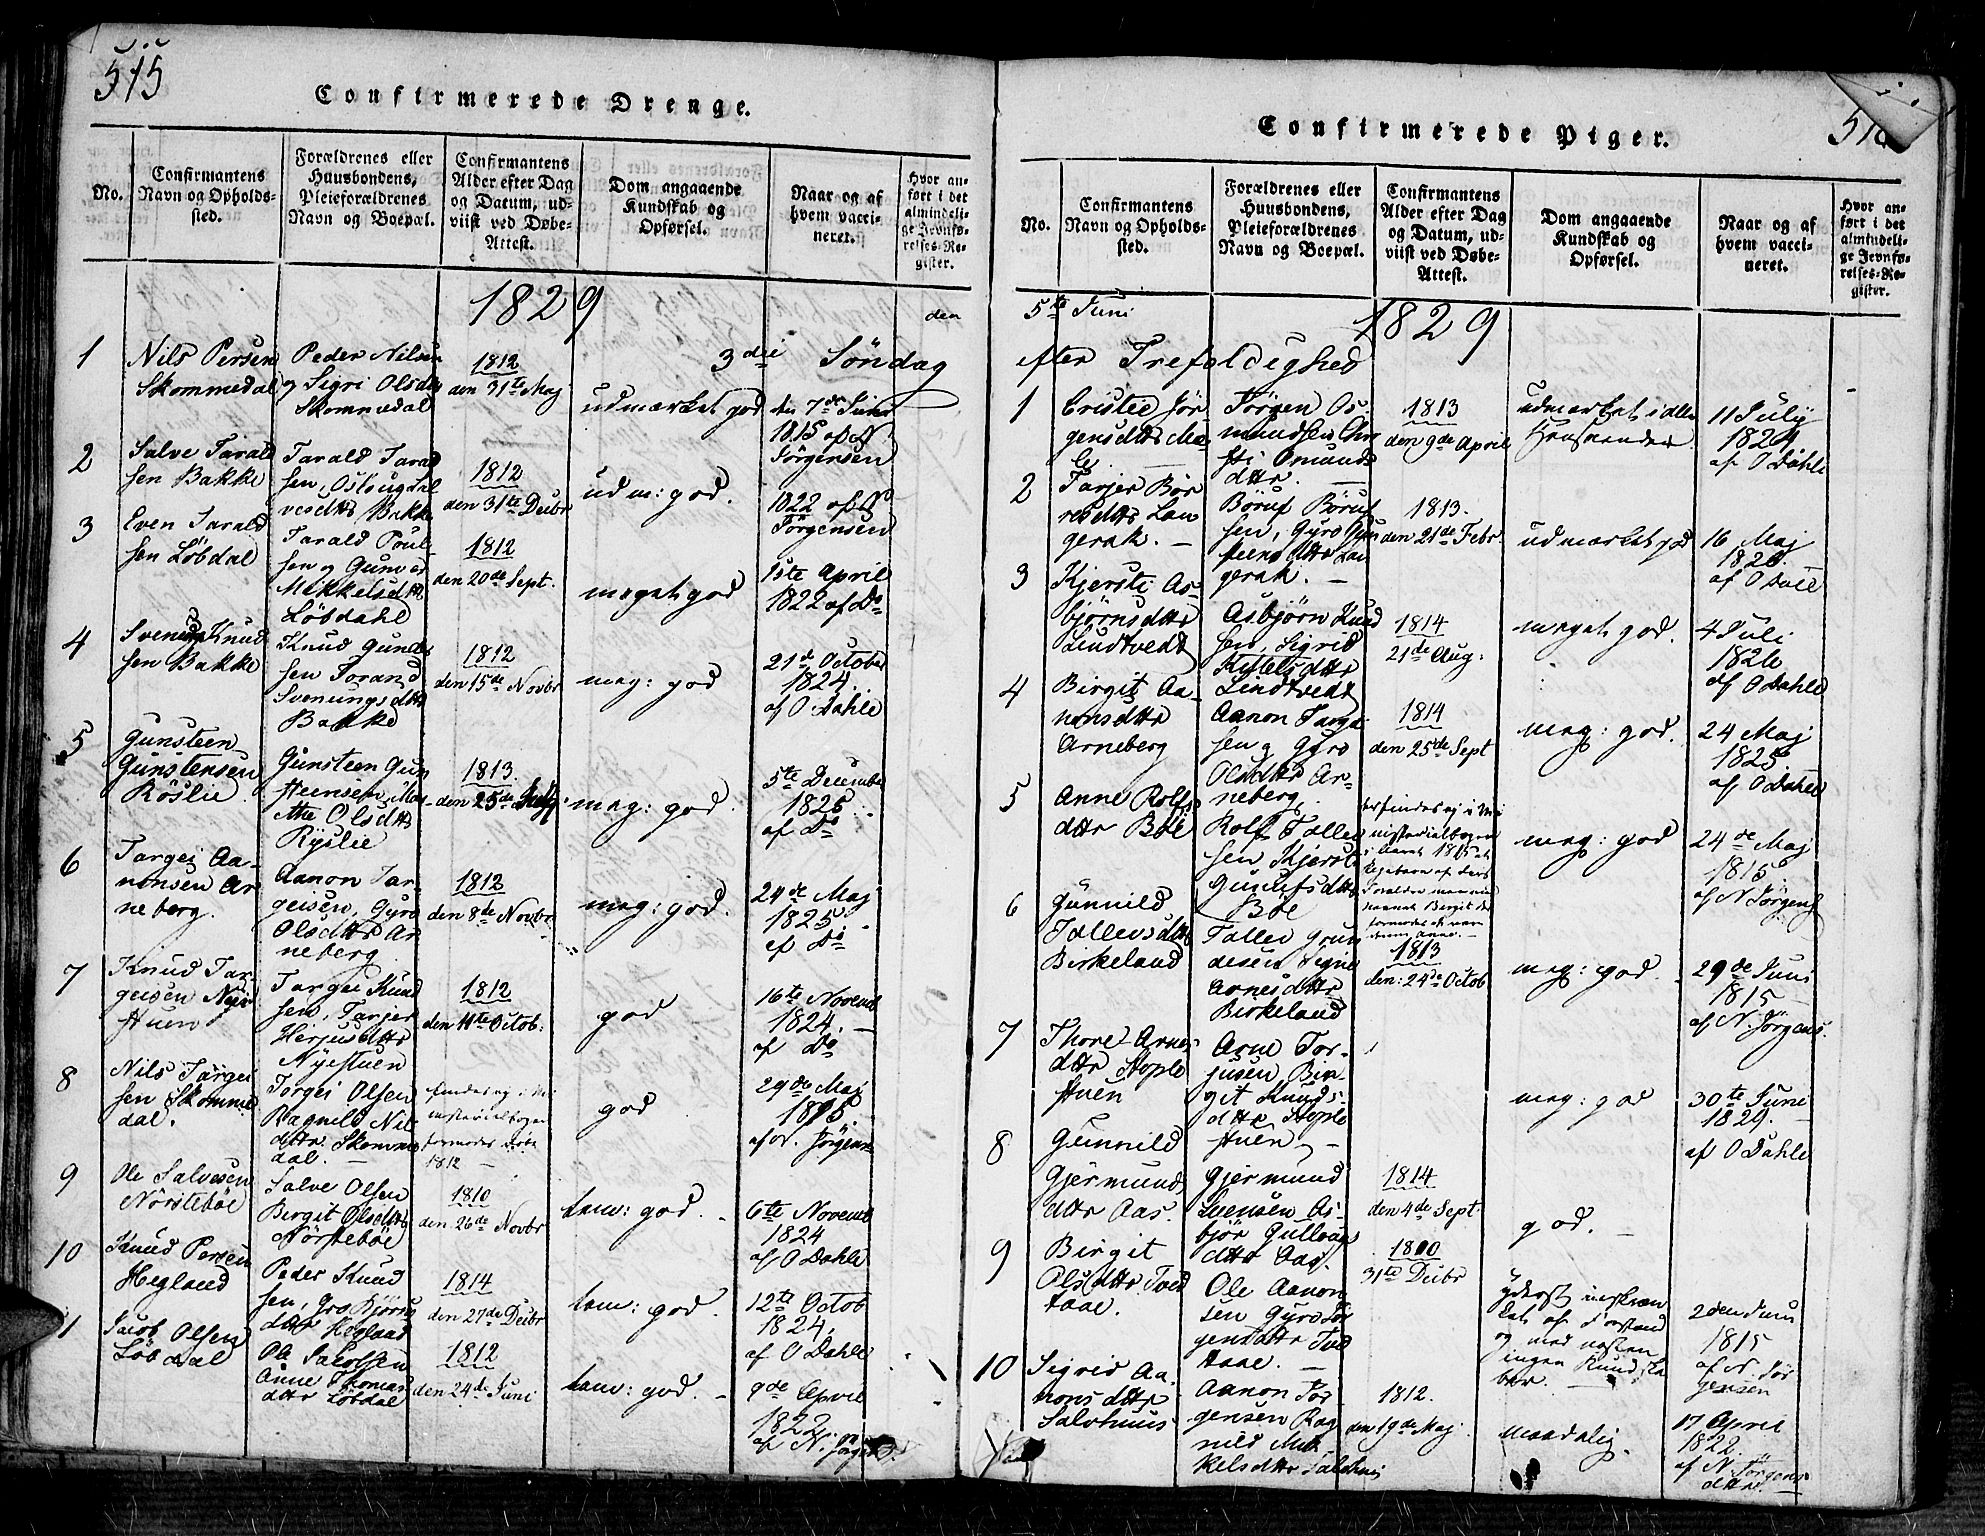 515
Confirmerede Drenge.
No.
Confirmantens
Navn og Opholds-
sted.
Forældrenes eller
Huusbondens,
Pleieforældrenes
Navn og Boepæl.
Confirmantens
Alder efter Dag
og Datum, ud-
viist ved Døbe-
Attest.
Dom angaaende
Kundskab og
Opførsel.
Naar og af
hvem vacci-
neret.
Hvor an-
ført i det
almindeli-
ge Jevnfø-
relses-Re-
gister.
1829
den
3die Søndag
1
Nils Persen
Skommedal
Peder Nilsen
og Sigri Olsdtr
Skommedal
1812
den 31te Maj
udmærket god
den 7de Juni
1815 af N
Jörgensen
2
Salve Tarald
sen Bakke
Tarald Tarald
sen, Oslaug Sal
vesdttr Bakke
1812
den 31te Decbr
udm: god.
1822 af N
Jörgensen
3
Even Tarald
sen Löbdal
Tarald Poul-
sen og Gunvor
Mikkelsdttr
Löbdahl
1812
den 20de Sept.
meget god
1ste April
1822 af Do
4
Svenung Knud
sen Bakke
Knud Gunder
sen Torand
Svenungsdttr
Bakke
1812
den 15de Novbr
meg: god
21de October
1824.
af O Dahle
5
Gunsteen
Gunstensen
Röslie
Gunsteen Gun
steensen, Mar-
the Olsdttr
Ryslie
1813.
den 25de July.
meg: god.
5te December
1825
af Do
6
Targei Aa-
nonsen Ar
neberg.
Aanon Tar-
geisen, Gyro
Olsdttr Ar
neberg
1812
den 8de Novbr
meg: god.
24de Maj
1825
af Do
7
Knud Tar-
geisen Nye
stuen
Targei Knud
sen, Tarjer
Herjusdttr
Nyestuen
1812
den 11te Octob:
god
16te Novemb
1824.
af Do
8
Nils Targei
sen Skomme
dal.
Torgei Olsen
Ragnild Nils
dttr Skomme
dal.
findes ej i Mi
nisterialbogen
formodes döbt
1812
god
29de Maj
1815.
af N. Jörgens
9
Ole Salvesen
Nörsteböe
Salve Olsen
Birgit Olsdttr
Nörsteböe
1810
den 26de Novbr
tem: god.
6te Novemb
1824
af O Dahle
10
Knud Persen
Hegland
Peder Knud
sen, Gro Björns
dttr Hegland
1814
den 27de Decbr
tem: god.
12te Octob
1824.
af O Dahle
11
Jacob Olsen
Löbdal
Ole Jacobsen
Anne Thomas
dttr Löbdal
1812
den 24de Juni
tem: god.
9de April
1822
af N. Jörgens
Confirmerede Piger.
No.
Confirmantens
Navn og Opholds-
sted.
Forældrenes eller
Huusbondens,
Pleieforældrenes
Navn og Boepæl.
Confirmantens
Alder efter Dag
og Datum, ud-
viist ved Døbe-
Attest.
Dom angaaende
Kundskab og
Opførsel.
Naar og af
hvem vacci-
neret.
Hvor an-
ført i det
almindeli-
ge Jevnfø-
relses-Re-
gister.
5te Juni
1829
efter Trefoldighed
1
Cristie Jör
gensdttr Mæ
Jörgen Os-
mundsen
dttr.
1813
den 9de April
udmærket i alle
Henseender.
11 July
1824
af O Dahle
2
Tarjer Bör
resdttr Lan
gerak.
Böruf Böruf
sen, Gyro Gun
steensdttr Lan
gerak.
1813.
den 21de Febr
udmærket god
16 Maj
1820
af O Dale
3
Kjersti As-
björnsdttr
Lindtvedt
Asbjörn Knud
sen, Sigrid
Kittelsdttr
Lindtvedt
1814
21de Aug:
meget god.
4 Juli
1826
af O Dahle
4
Birgit Aa-
nonsdttr
Arneberg
Aanon Targe
sen og Gyro
Olsdttr Ar-
neberg
1814
den 25de Sept
meg: god.
24 Maj
1825
af O Dahle
5
Anne Rolfs
dttr Böe
Rolf Tallev
sen Kjersti
Gunulfsdttr
Böe
findes ej i Mi
nisterialbogen
i Aaret 1815 et
Pigebarn af disse
Forældre men med
Navnet Birgit der
formodes at være
denne Anne.
meg: god
24de Maj
1815
af N. Jörgens
6
Gunnild
Tallevsdttr
Birkeland
Tallev Gun
desen Signe
Arnesdttr
Birkeland
1813
den: 24de Octob
meg: god.
29de Juni
1815
af N. Jörgens.
7
Thore Arnes
dttr Hople
stuen
Arne Tor-
jusen Bir-
git Knuds-
dttr Hople
stuen
meg: god
30te Juni
1829.
af O Dahle
8
Gunnild
Gjermund
dttr Aas.
Gjermund
Svensen As-
björ Gulleus
dttr Aas.
1814
den 4de Sept
god.
9
Birgit
Olsdttr Tved
taae.
Ole Aanon
sen Gyro Jör
gensdttr Tved
taae.
1800
31te Decbr
yderst indskræn
ket af Forstand
og med næsten
ingen Kundska
ber.
2den Juni
1815
af N. Jör
gensen
10
Sigrid Aa-
nonsdttr
Salvhuus
Aanon Tor
gensen Rag
nild Mik-
kelsdttr Salvhus
1812.
den 19de Maj
maadelig.
17 April
1822.
af N. Jörgens